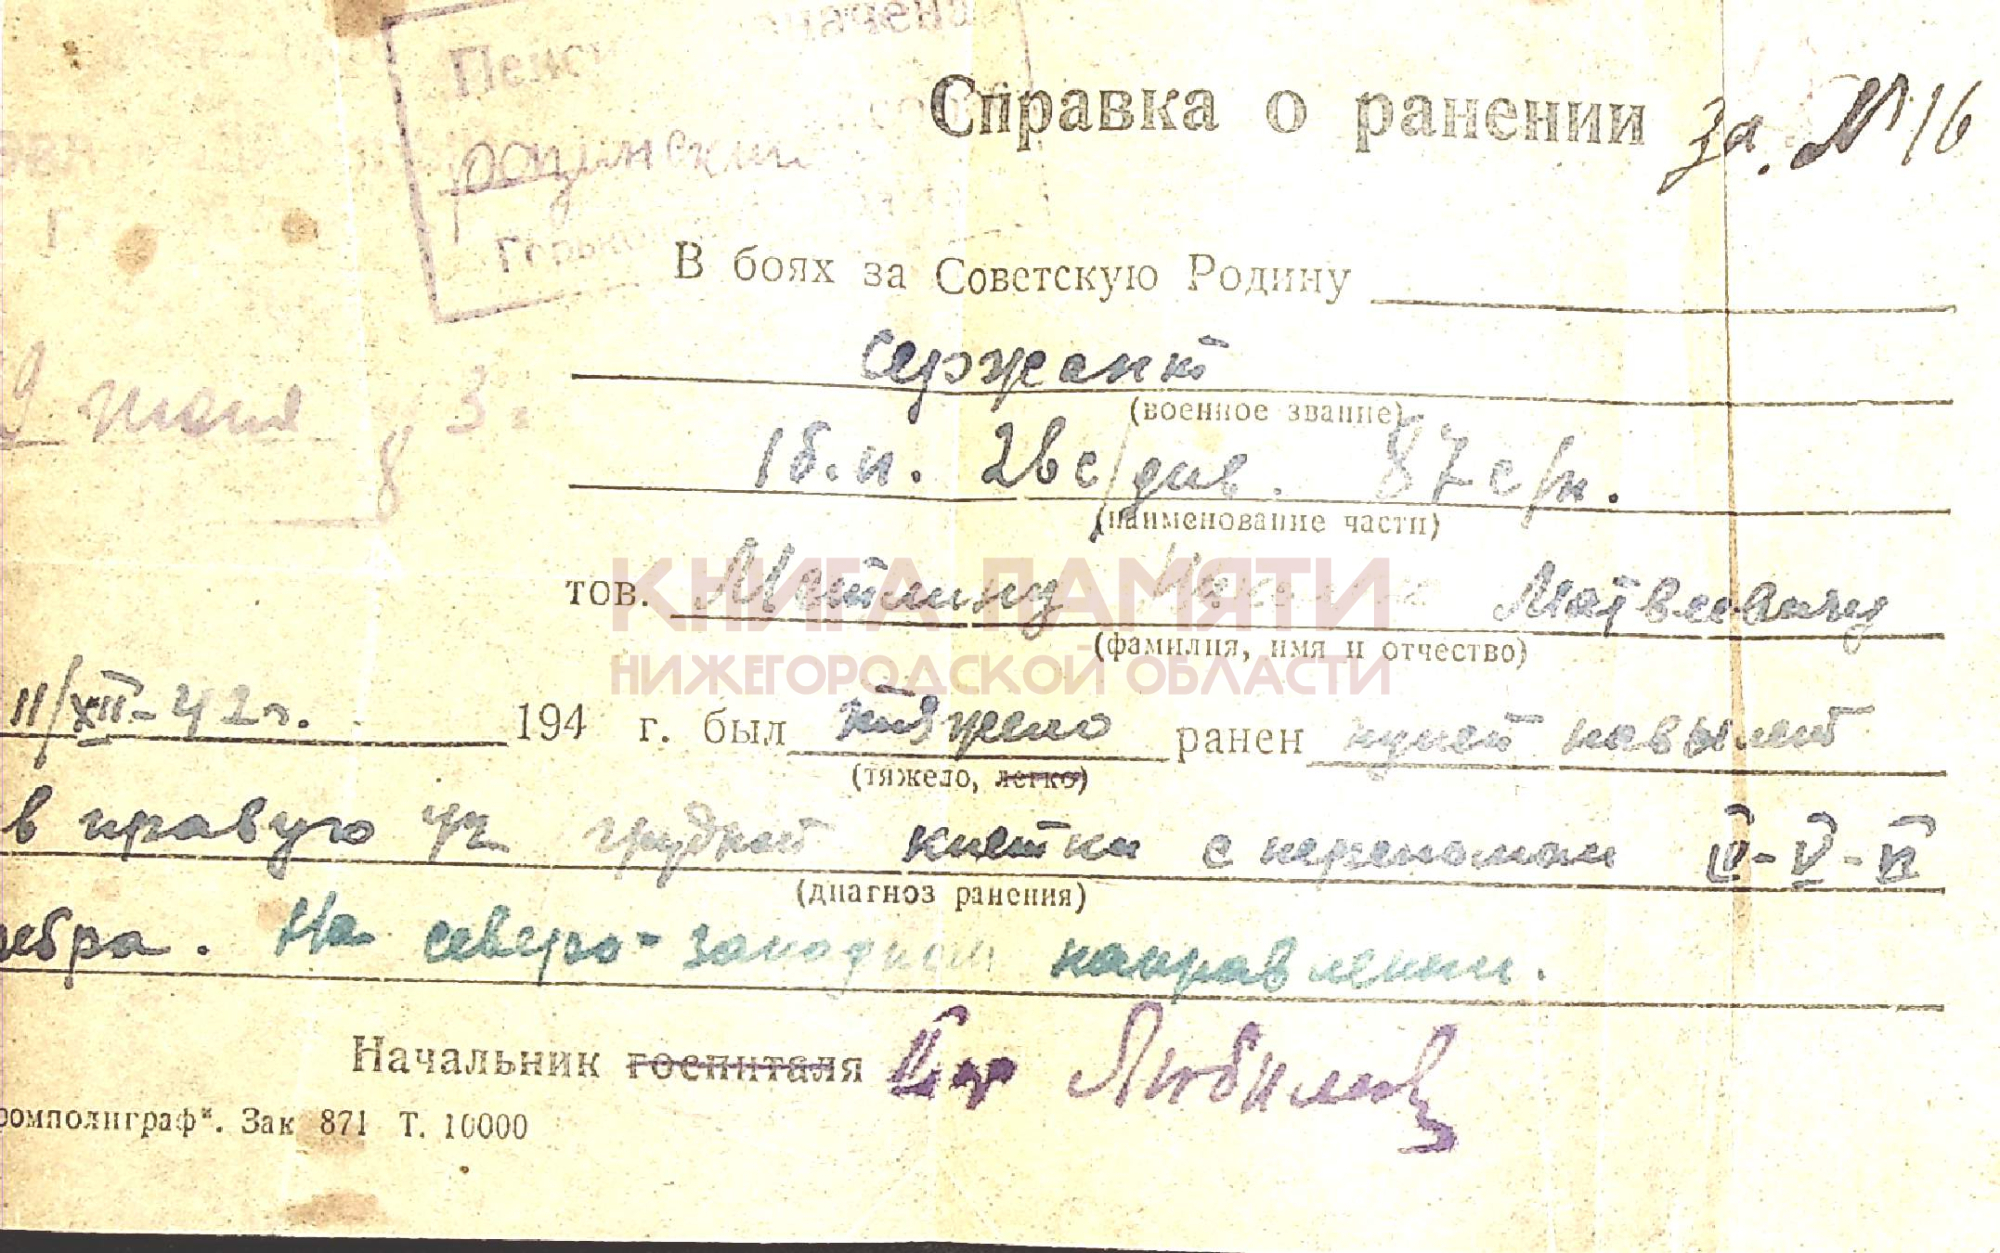 Справка о ранении за. № 16
рощинский
В боях за Советскую Родину
сержант
(военное звание)
9 июня 8 3
1 б.п. 2вс/див. 87 с/п.
(наименование части)
КНИГА ПАМЯТИ
тов. Митину Матвеевичу
(фамилия, имя и отчество)
НИЖЕГОРОДСКОЙ ОБЛАСТИ
11/XII-42г. 194 г. был тяжело ранен пулей навылет
(тяжело, легко)
в правую грудной клетки с переломом IV-V-VI
(диагноз ранения)
ребра. На северо-западном направлении.
Начальник госпиталя
ромполиграф". Зак 871 Т. 10000